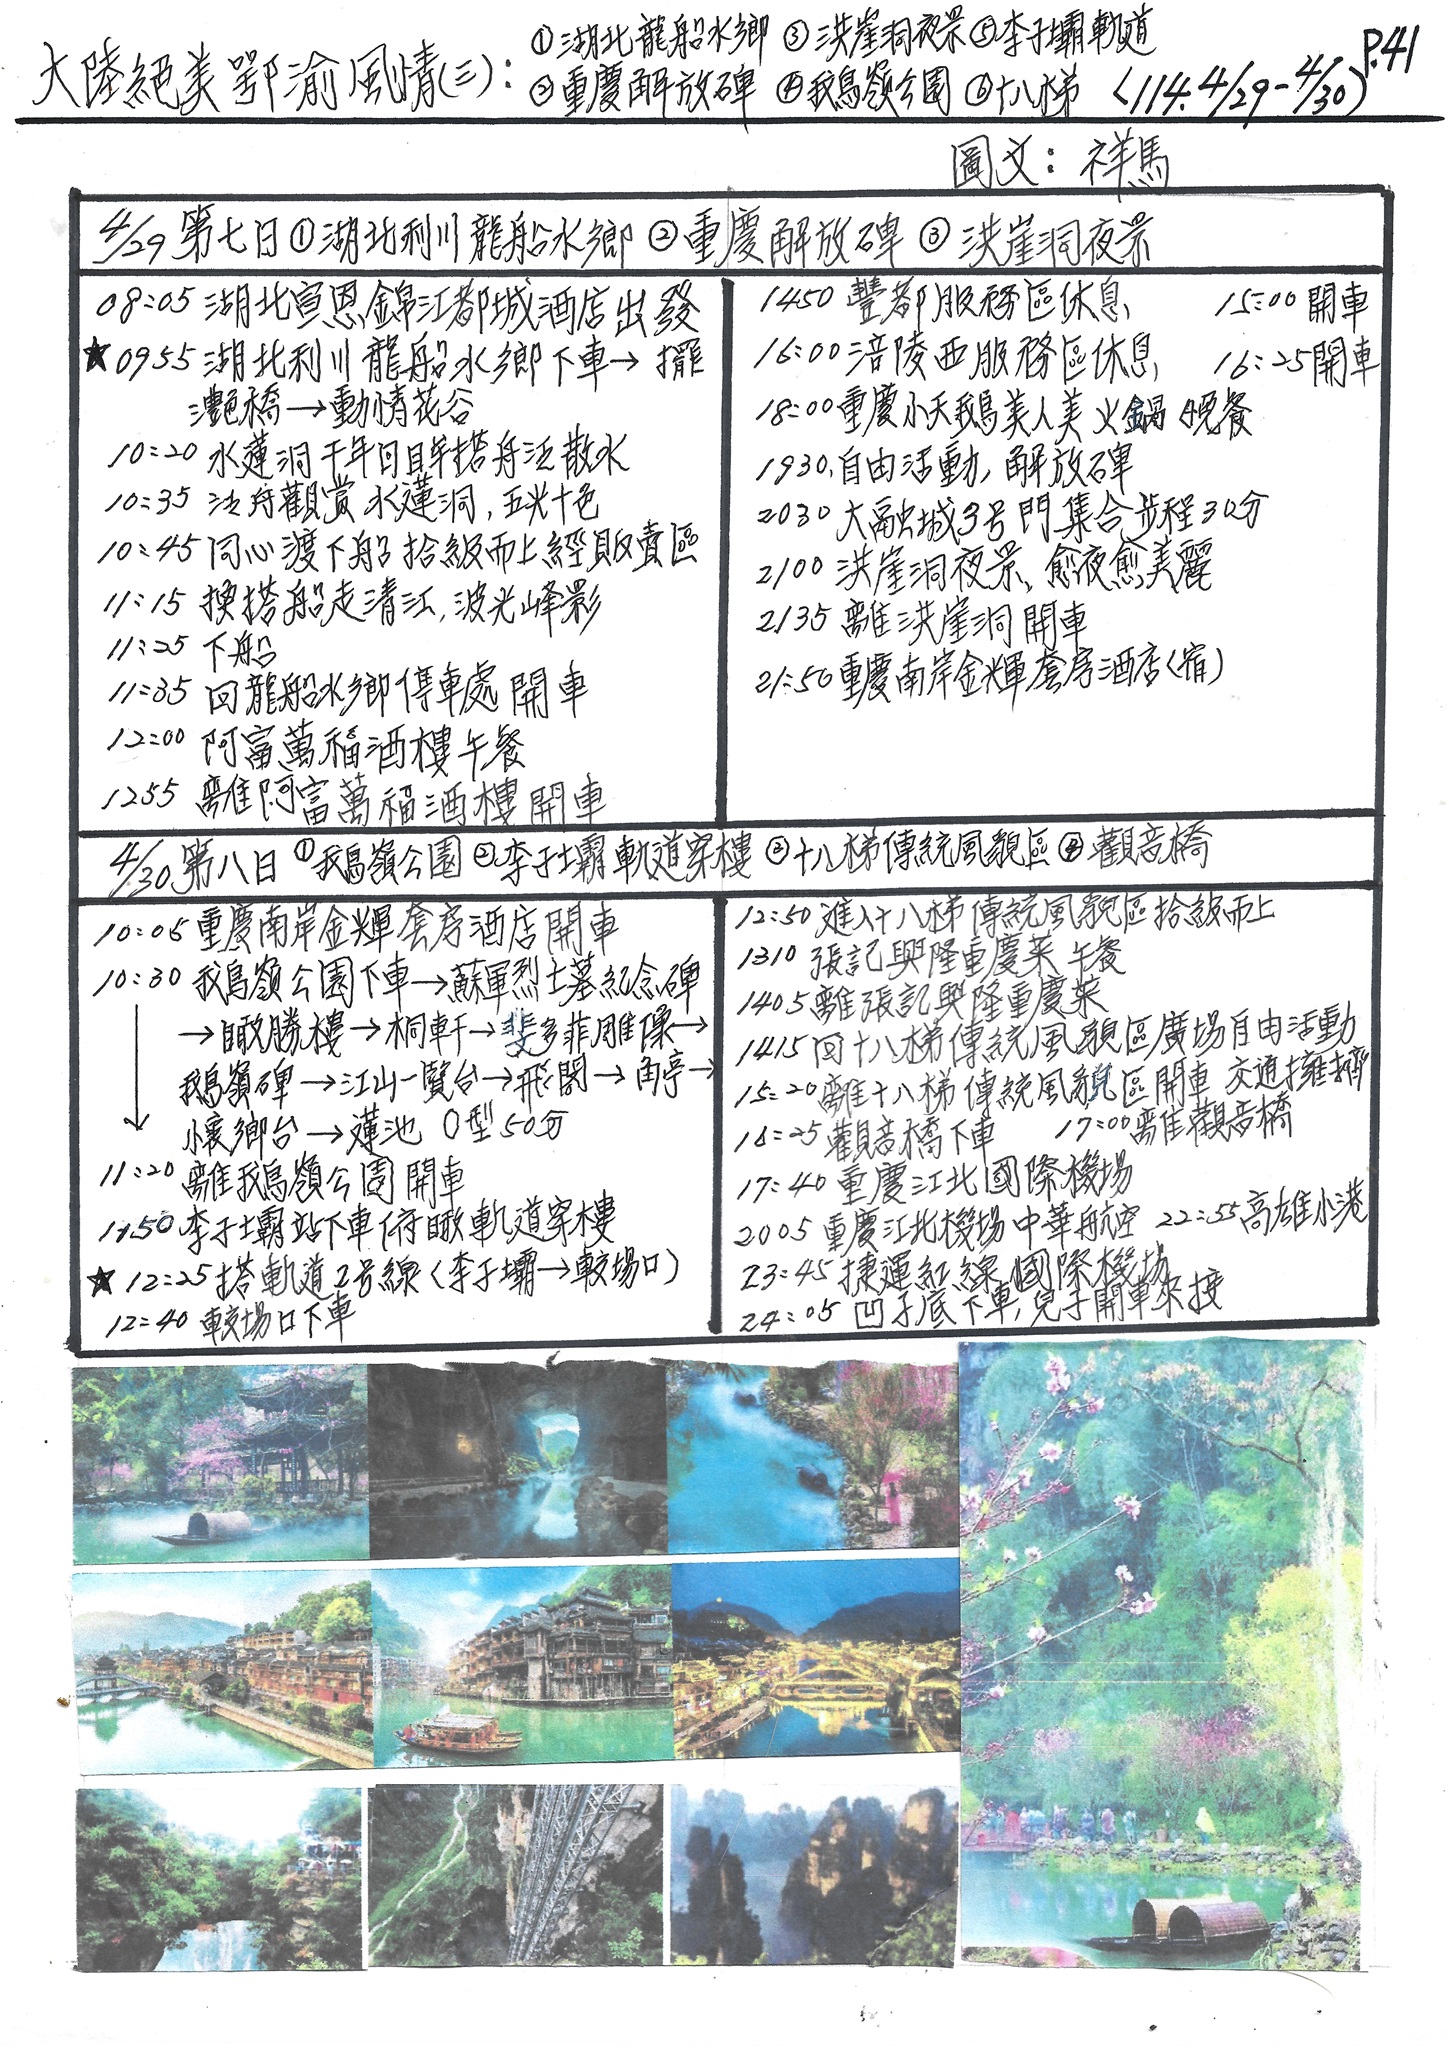 ①湖北龍船水鄉 ③洪崖洞夜景 ⑤李子壩軌道
大陸絕美鄂渝風情(三): ②重慶解放碑 ④鵝嶺公園 ⑥十八梯 (114.4/29-4/30) P.41
圖文: 祥馬
4/29 第七日 ①湖北利川龍船水鄉 ②重慶解放碑 ③洪崖洞夜景
08:05 湖北宣恩錦江都城酒店出發
★0955 湖北利川龍船水鄉下車→擺
灩橋→動情花谷
10:20 水蓮洞千年日月岸搭舟泛散水
10:35 泛舟觀賞水蓮洞,五光十色
10:45 同心渡下船拾級而上經販賣區
11:15 換搭船走清江,波光峰影
11:25 下船
11:35 回龍船水鄉停車處開車
12:00 阿富萬福酒樓午餐
1255 離阿富萬福酒樓開車
1450 豐都服務區休息 15:00 開車
16:00 涪陵西服務區休息 16:25開車
18:00 重慶小天鵝美人美火鍋晚餐
1930,自由活動,解放碑
2030 大融城3号門集合步程30分
2100 洪崖洞夜景、愈夜愈美麗
2135 離洪崖洞開車
21:50 重慶南岸金輝套房酒店(宿)
4/30 第八日 ①鵝嶺公園 ②李子壩軌道穿樓 ③十八梯傳統風貌區 ④觀音橋
10:05 重慶南岸金輝套房酒店開車
10:30 鵝嶺公園下車→蘇軍烈士墓紀念碑
→瞰勝樓→桐軒→斐多菲雕像→
鵝嶺碑→江山一覽台→飛閣→角亭→
懷鄉台→蓮池 O型50分
11:20 離鵝嶺公園開車
11:50 李子壩站下車俯瞰軌道穿樓
★12:25 搭軌道2号線(李子壩→較場口)
12:40 較場口下車
12:50 進入十八梯傳統風貌區拾級而上
1310 張記興隆重慶菜午餐
1405 離張記興隆重慶菜
1415 回十八梯傳統風貌區廣場自由活動
15:20 離十八梯傳統風貌區開車 交通擁擠
16:25 觀音橋下車 17:00 離觀音橋
17:40 重慶江北國際機場
2005 重慶江北機場中華航空 22:55 高雄小港
23:45 捷運紅線國際機場
24:05 凹子底下車,兒子開車來接